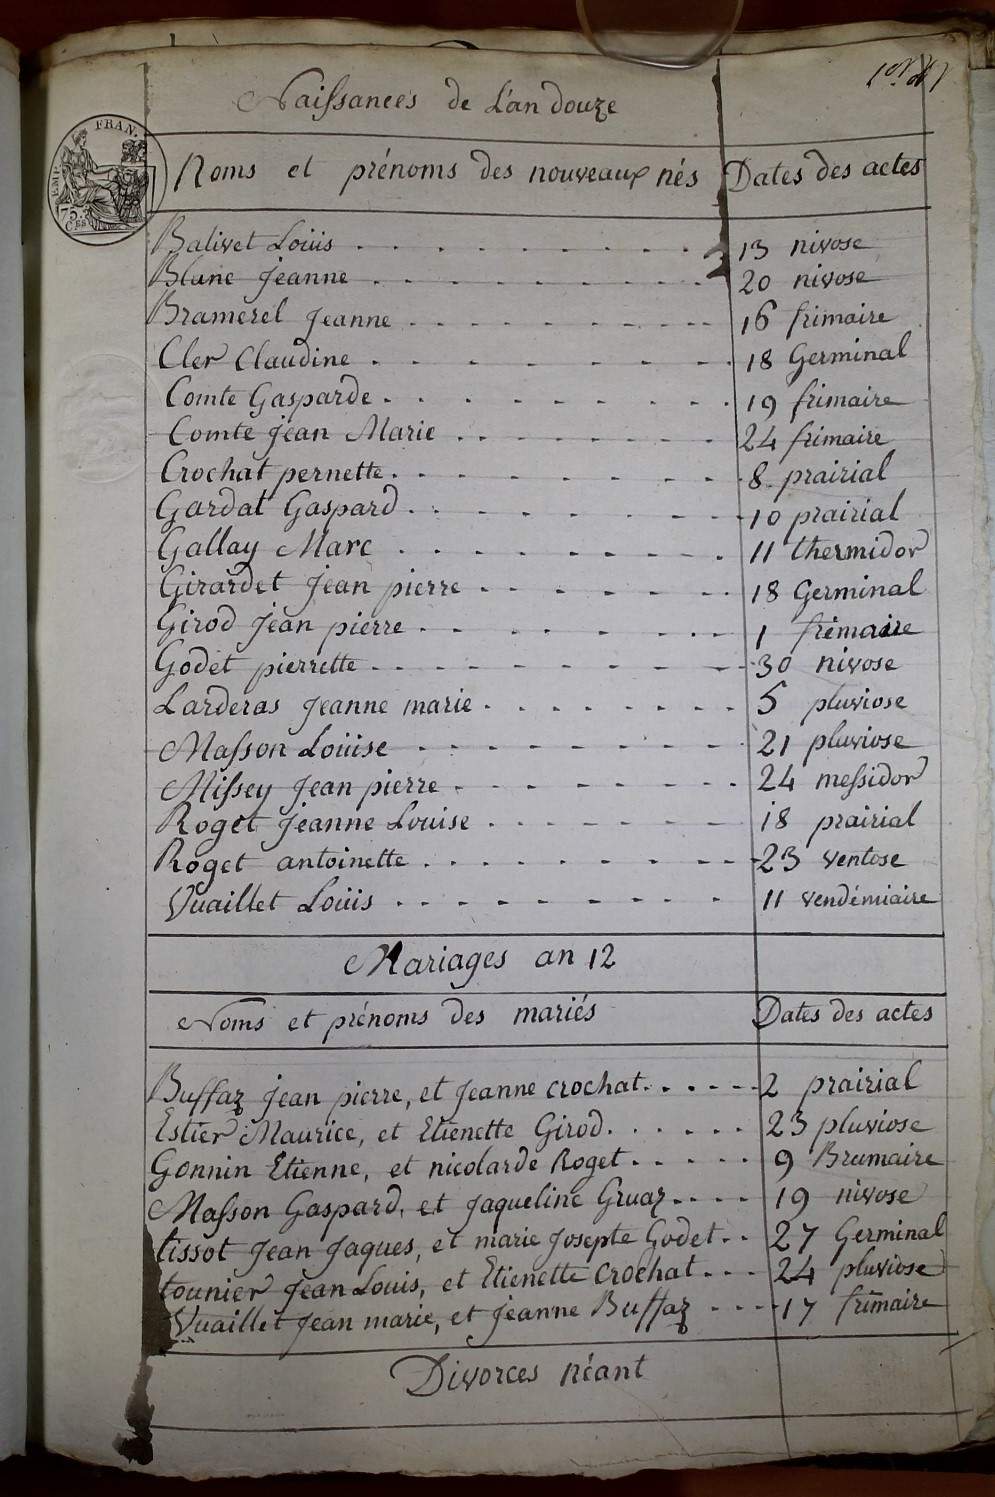 Naissances de L'an douze
FRAN.
EMP.
75.
Ces
Noms et prénoms des nouveaux nés Dates des actes
Balivet Loüis 13 nivose
Blanc Jeanne 20 nivose
Bramerel Jeanne 16 frimaire
Cler Claudine 18 Germinal
Comte Gasparde 19 frimaire
Comte jéan Marie 24 frimaire
Crochat pernette 8 prairial
Gardat Gaspard 10 prairial
Gallay Marc 11 thermidor
Girardet Jean pierre 18 Germinal
Girod Jean pierre 1 frimaire
Godet pierrette 30 nivose
Larderas Jeanne marie 5 pluviose
Masson Loüise 21 pluviose
Missey Jean pierre 24 messidor
Roget Jeanne Louise 18 prairial
Roget antoinette 23 ventose
Vuaillet Loüis 11 vendémiaire
Mariages an 12
Noms et prénoms des mariés Dates des actes
Buffaz Jean pierre, et Jeanne crochat 2 prairial
Estier Maurice, et Etienette Girod 23 pluviose
Gonnin Etienne, et nicolarde Roget 9 Brumaire
Masson Gaspard, et Jaqueline Gruaz 19 nivose
tissot Jean Jaques, et marie Josepte Godet 27 Germinal
tounier Jean Louis, et Etienette Crochat 24 pluviose
Vuaillet Jean marie, et Jeanne Buffaz 17 frimaire
Divorces néant